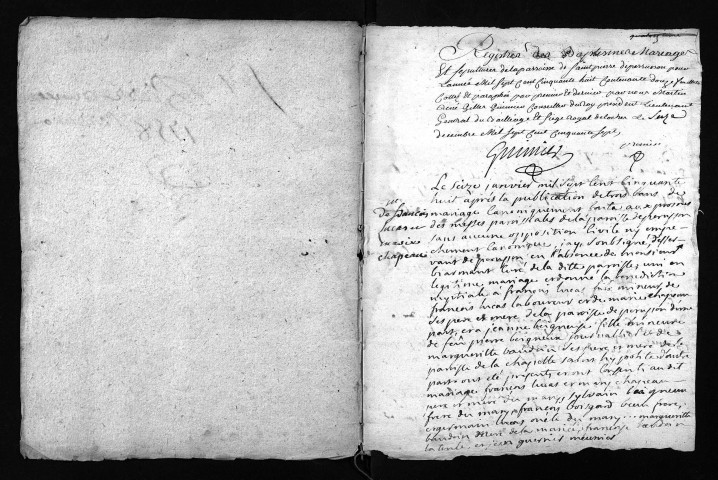 Registres des Baptesmes Mariages
Et sepultures de la parroisse de Saint pierre de perrusson pour
Lannée Mil Sept Cent Cinquante huit Contenante douze feuillets
Cottés et paraphés par premier et dernier par nous
René Gilles Quinier Conseiller du Roy president Lieutenant
General du Bailliage et Siege Royal de Loches Le Seize
decembre Mil Sept Cent Cinquante Sept
premier
Le Seize janvier mil Sept Cent Cinquante
huit après la publication de trois bans de
mariage Canoniquement faite au prosnes
des messes paroissiales de la paroisse de perusson
sans aucune opposition Civile ny empe
chement Canonique, jay Soubsigné desser
vant de perusson en l'absence de monsieur
curé de la ditte paroisse, uni en
legitime mariage et donné la benediction
nuptiale à françois lucas fils mineur de
françois lucas laboureur et de marie chapeau
Ses pere et mere de la paroisse de perusson d'une
part, et a jeanne beigneux fille mineure
de feu pierre beigneux et de
margueritte baudrin Ses pere et mere de la
paroisse de la chapelle saint hypolithe d'autre
part ont été présents et ont Consenti audit
mariage françois lucas et marie chapeau
pere et mere du mary Sylvain beigneux
frere françois boizard beau frere,
germain lucas oncle du mary margueritte
baudrin mere de la mariée, françoise baudrin
la tante et jean meunier
du
de françois
lucas
chapeau
1758